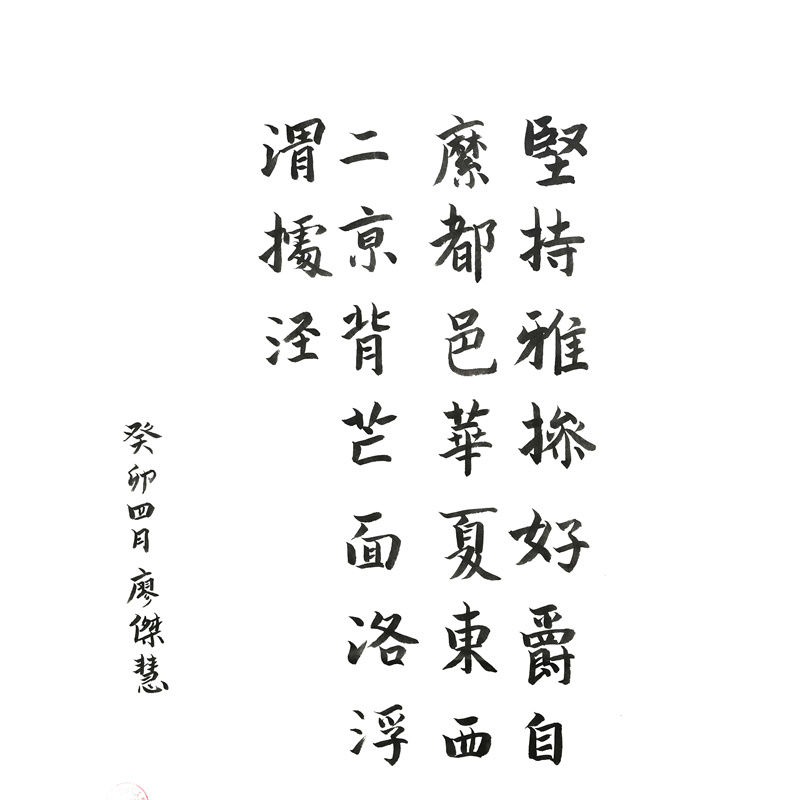 堅持雅操好爵自
縻都邑華夏東西
二京背芒面洛浮
渭據涇
癸卯四月廖傑慧